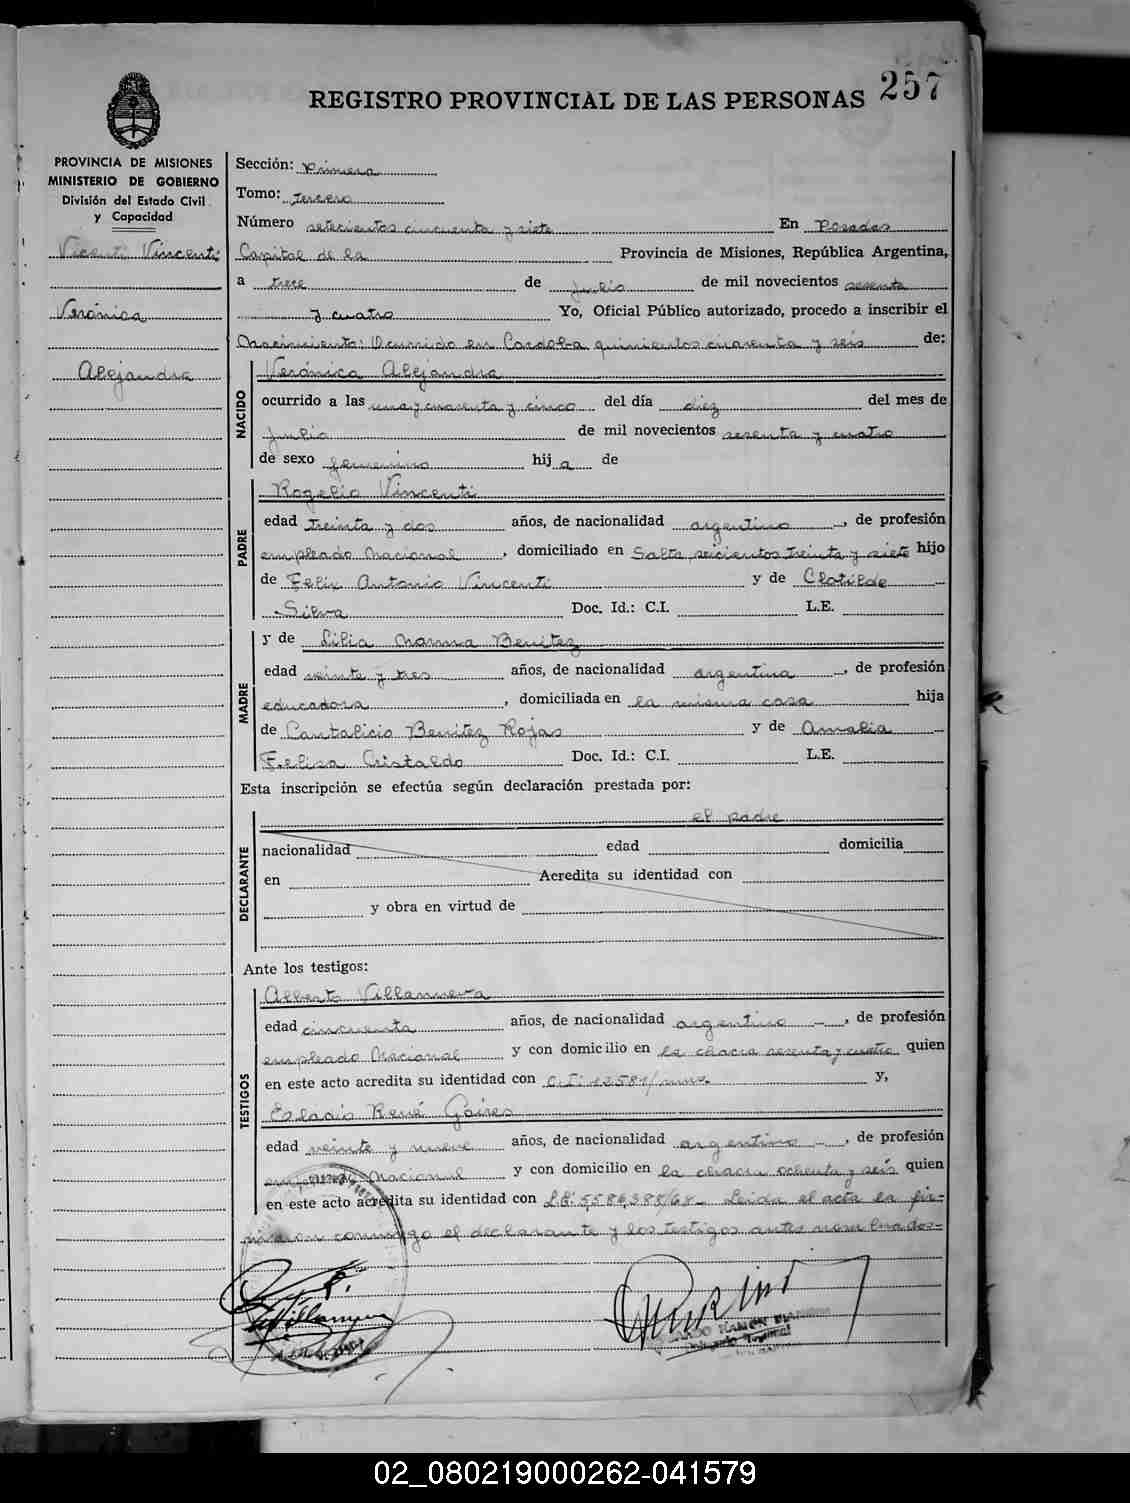 257
REGISTRO PROVINCIAL DE LAS PERSONAS
PROVINCIA DE MISIONES
MINISTERIO DE GOBIERNO
División del Estado Civil
y Capacidad
Vicenti Vincenti
Verónica
Alejandra
Sección: Primera
Tomo: Tercero
Número setecientos cincuenta y siete En Posadas
Capital de la Provincia de Misiones, República Argentina,
a trece de julio de mil novecientos sesenta
y cuatro Yo, Oficial Público autorizado, procedo a inscribir el
Nacimiento: Ocurrido en Cordoba quinientos cuarenta y seis de:
NACIDO
Verónica Alejandra
ocurrido a las una y cuarenta y cinco del día diez del mes de
Julio de mil novecientos sesenta y cuatro
de sexo femenino hij a de
PADRE
Rogelio Vincenti
edad treinta y dos años, de nacionalidad argentino, de profesión
empleado Nacional, domiciliado en Salta seicientos treinta y siete hijo
de Felix Antonio Vincenti y de Clotilde
Silva Doc. Id.: C.I. L.E.
MADRE
y de Lilia Norma Benitez
edad veinte y tres años, de nacionalidad argentina, de profesión
educadora, domiciliada en la misma casa hija
de Cantalicio Benitez Rojas y de Amalia
Felisa Cristaldo Doc. Id.: C.I. L.E.
Esta inscripción se efectúa según declaración prestada por:
el padre
DECLARANTE
nacionalidad edad domicilia
en Acredita su identidad con
y obra en virtud de
Ante los testigos:
TESTIGOS
Alberto Villanueva
edad cincuenta años, de nacionalidad argentino, de profesión
empleado Nacional y con domicilio en la chacra sesenta y cuatro quien
en este acto acredita su identidad con C.I: y,
René Gaires
edad veinte y nueve años, de nacionalidad argentino, de profesión
empleado Nacional y con domicilio en la chacra ochenta y seis quien
en este acto acredita su identidad con Leida el acta la fir=
maron conmigo el declarante y los testigos antes nombrados=
Villanueva
RAMON
02_080219000262-041579